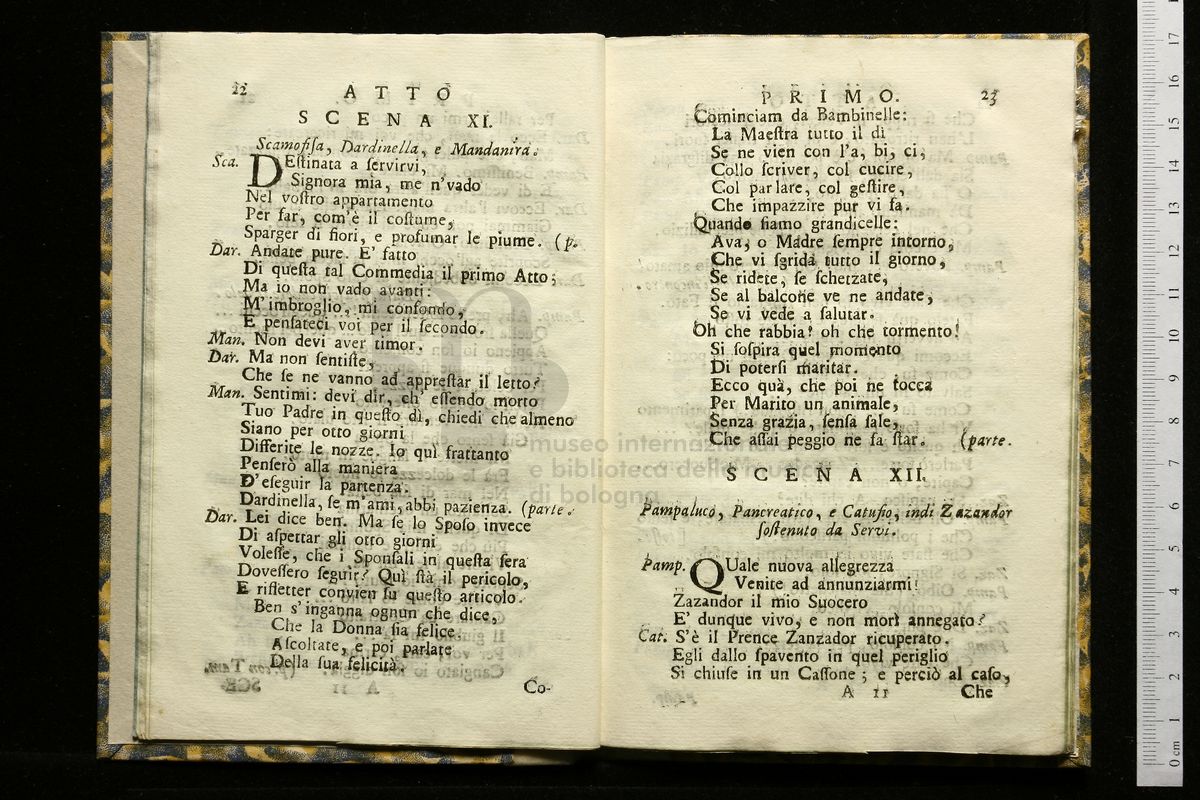 22 ATTO
SCENA XI.
Scamofiſa, Dardinella, e Mandanira.
Sca. DEſtinata a ſervirvi,
Signora mia, me n'vado
Nel voſtro appartamento
Per far, com'è il coſtume,
Sparger di fiori, e profumar le piume. (p.
Dar. Andate pure. E' fatto
Di queſta tal Commedia il primo Atto;
Ma io non vado avanti:
M'imbroglio, mi confondo,
E penſateci voi per il ſecondo.
Man. Non devi aver timor.
Dar. Ma non ſentiſte,
Che ſe ne vanno ad appreſtar il letto?
Man. Sentimi: devi dir, ch' eſſendo morto
Tuo Padre in queſto dì, chiedi che almeno
Siano per otto giorni
Differite le nozze. Io quì frattanto
Penſerò alla maniera
D'eſeguir la partenza.
Dardinella, ſe m'ami, abbi pazienza. (parte.
Dar. Lei dice ben. Ma ſe lo Spoſo invece
Di aſpettar gli otto giorni
Voleſſe, che i Sponſali in queſta ſera
Doveſſero ſeguir? Quì ſtà il pericolo,
E rifletter convien ſu queſto articolo.
Ben s'inganna ognun che dice,
Che la Donna ſia felice.
Aſcoltate, e poi parlate
Della ſua felicità.
A 11 Co-
PRIMO. 23
Cominciam da Bambinelle:
La Maeſtra tutto il dì
Se ne vien con l'a, bi, ci,
Collo ſcriver, col cucire,
Col parlare, col geſtire,
Che impazzire pur vi fa.
Quando ſiamo grandicelle:
Ava, o Madre ſempre intorno,
Che vi ſgrida tutto il giorno,
Se ridete, ſe ſcherzate,
Se al balcone ve ne andate,
Se vi vede a ſalutar.
Oh che rabbia! oh che tormento!
Si ſoſpira quel momento
Di poterſi maritar.
Ecco quà, che poi ne tocca
Per Marito un animale,
Senza grazia, ſenſa ſale,
Che aſſai peggio ne fa ſtar. (parte.
SCENA XII.
Pampaluco, Pancreatico, e Catuſio, indi Zazandor
ſoſtenuto da Servi.
Pamp. QUale nuova allegrezza
Venite ad annunziarmi!
Zazandor il mio Suocero
E' dunque vivo, e non morì annegato?
Cat. S'è il Prence Zanzador ricuperato.
Egli dallo ſpavento in quel periglio
Si chiuſe in un Caſſone; e perciò al caſo,
A 11 Che
museo internazionale
e biblioteca della musica
di bologna